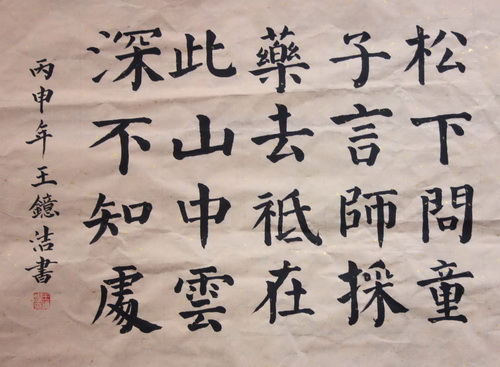 松下問童
子言師採
藥去祗在
此山中雲
深不知處
丙申年王鐿洁書